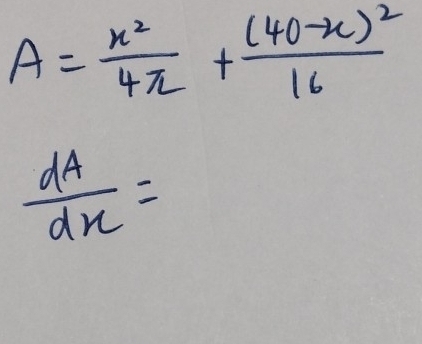 A = x²/4π + (40-x)²/16
dA/dx =